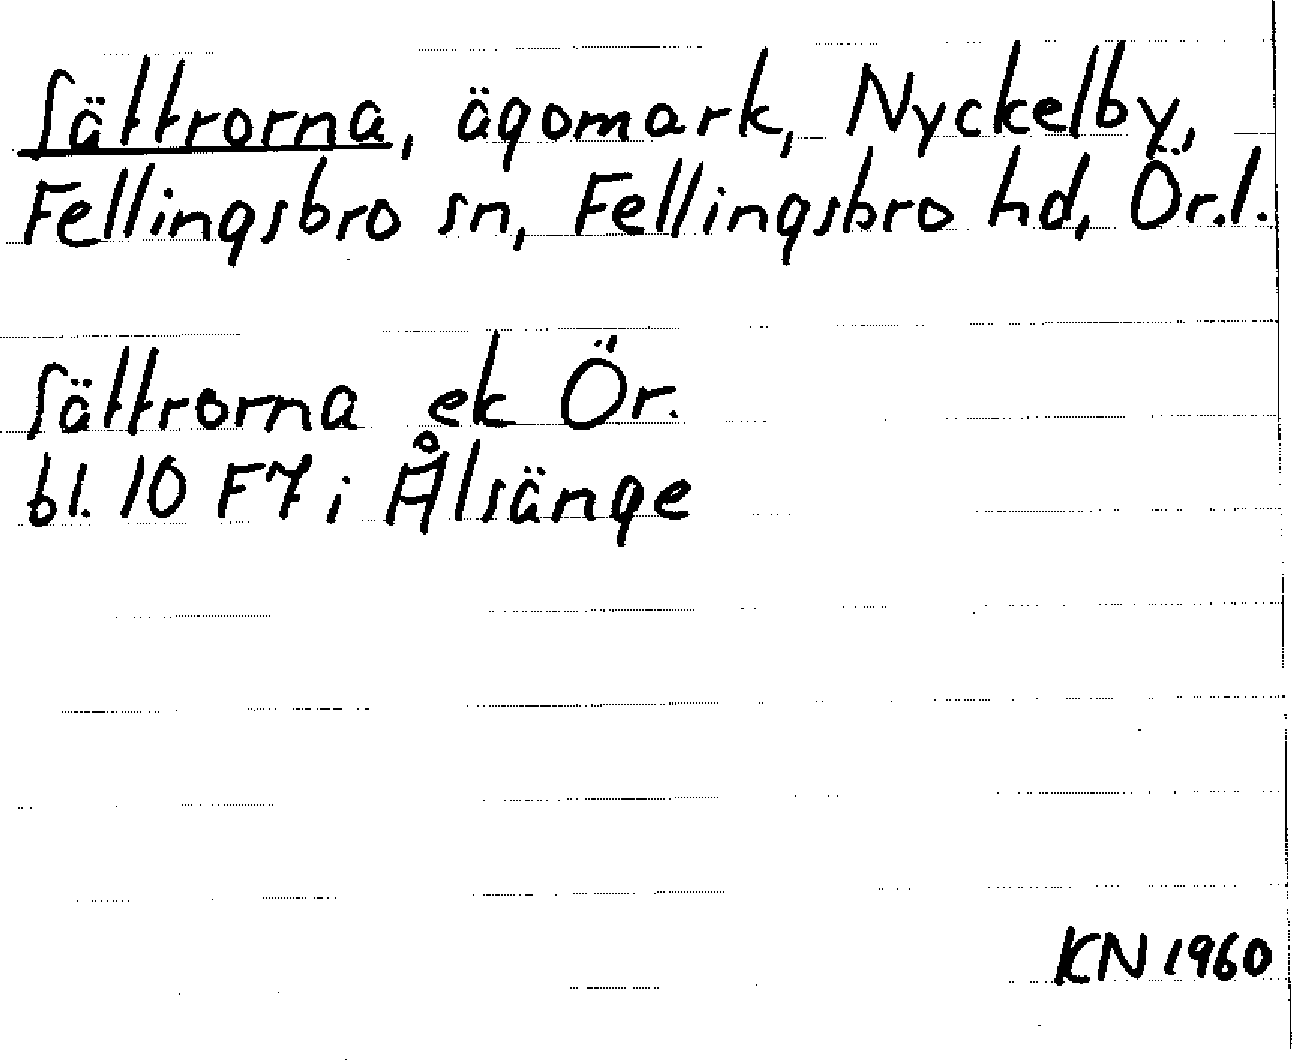 Sättrorna, ägomark, Nyckelby,
Fellingsbro sn, Fellingsbro hd, Ör.l.
Sättrorna ek Ör.
bl. 10 F7 i Ålsänge
KN 1960